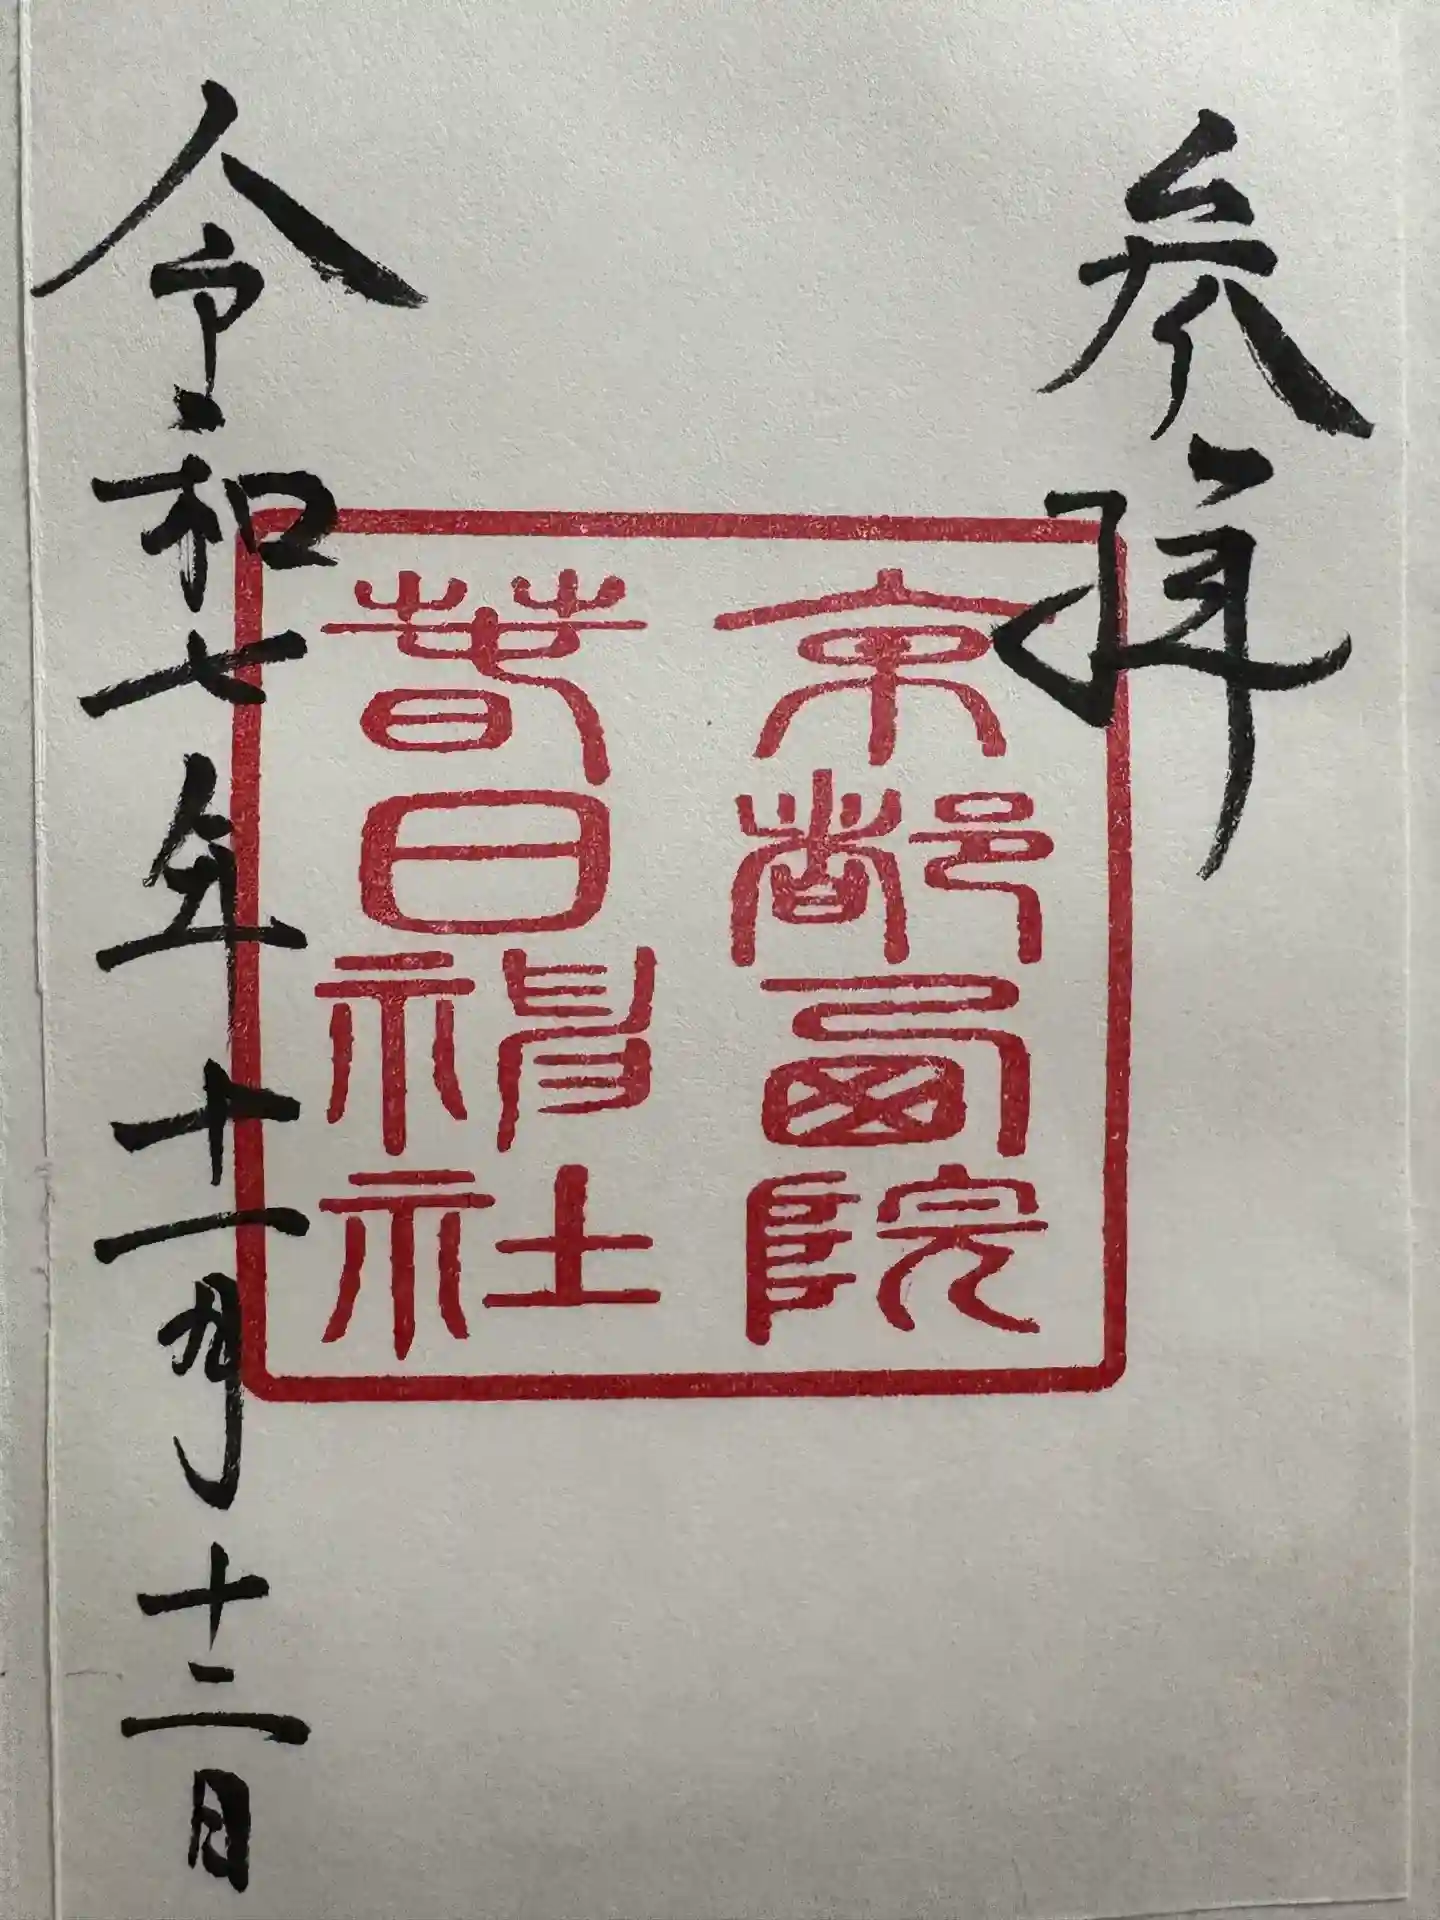 参拝
京都西院
春日神社
令和七年十一月十二日